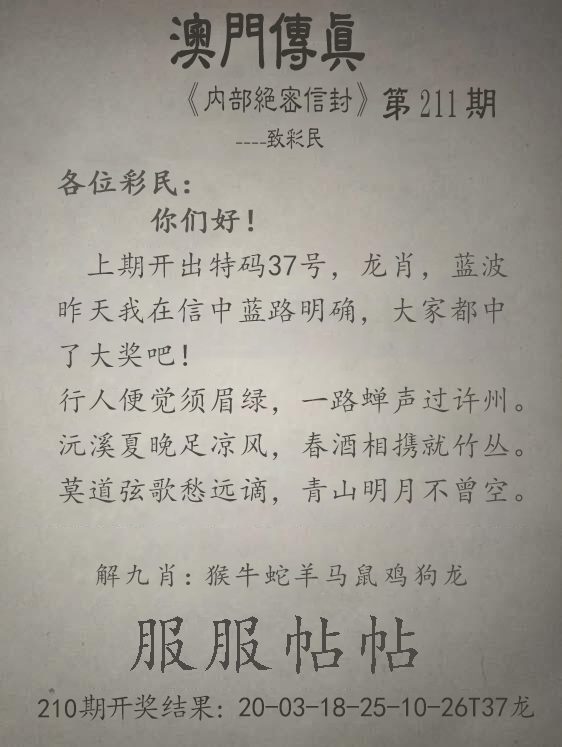 澳門傳眞
《内部絕密信封》第211期
----致彩民
各位彩民：
你们好！
上期开出特码37号，龙肖，蓝波
昨天我在信中蓝路明确，大家都中
了大奖吧！
行人便觉须眉绿，一路蝉声过许州。
沅溪夏晚足凉风，春酒相携就竹丛。
莫道弦歌愁远谪，青山明月不曾空。
解九肖：猴牛蛇羊马鼠鸡狗龙
服服帖帖
210期开奖结果：20-03-18-25-10-26T37龙